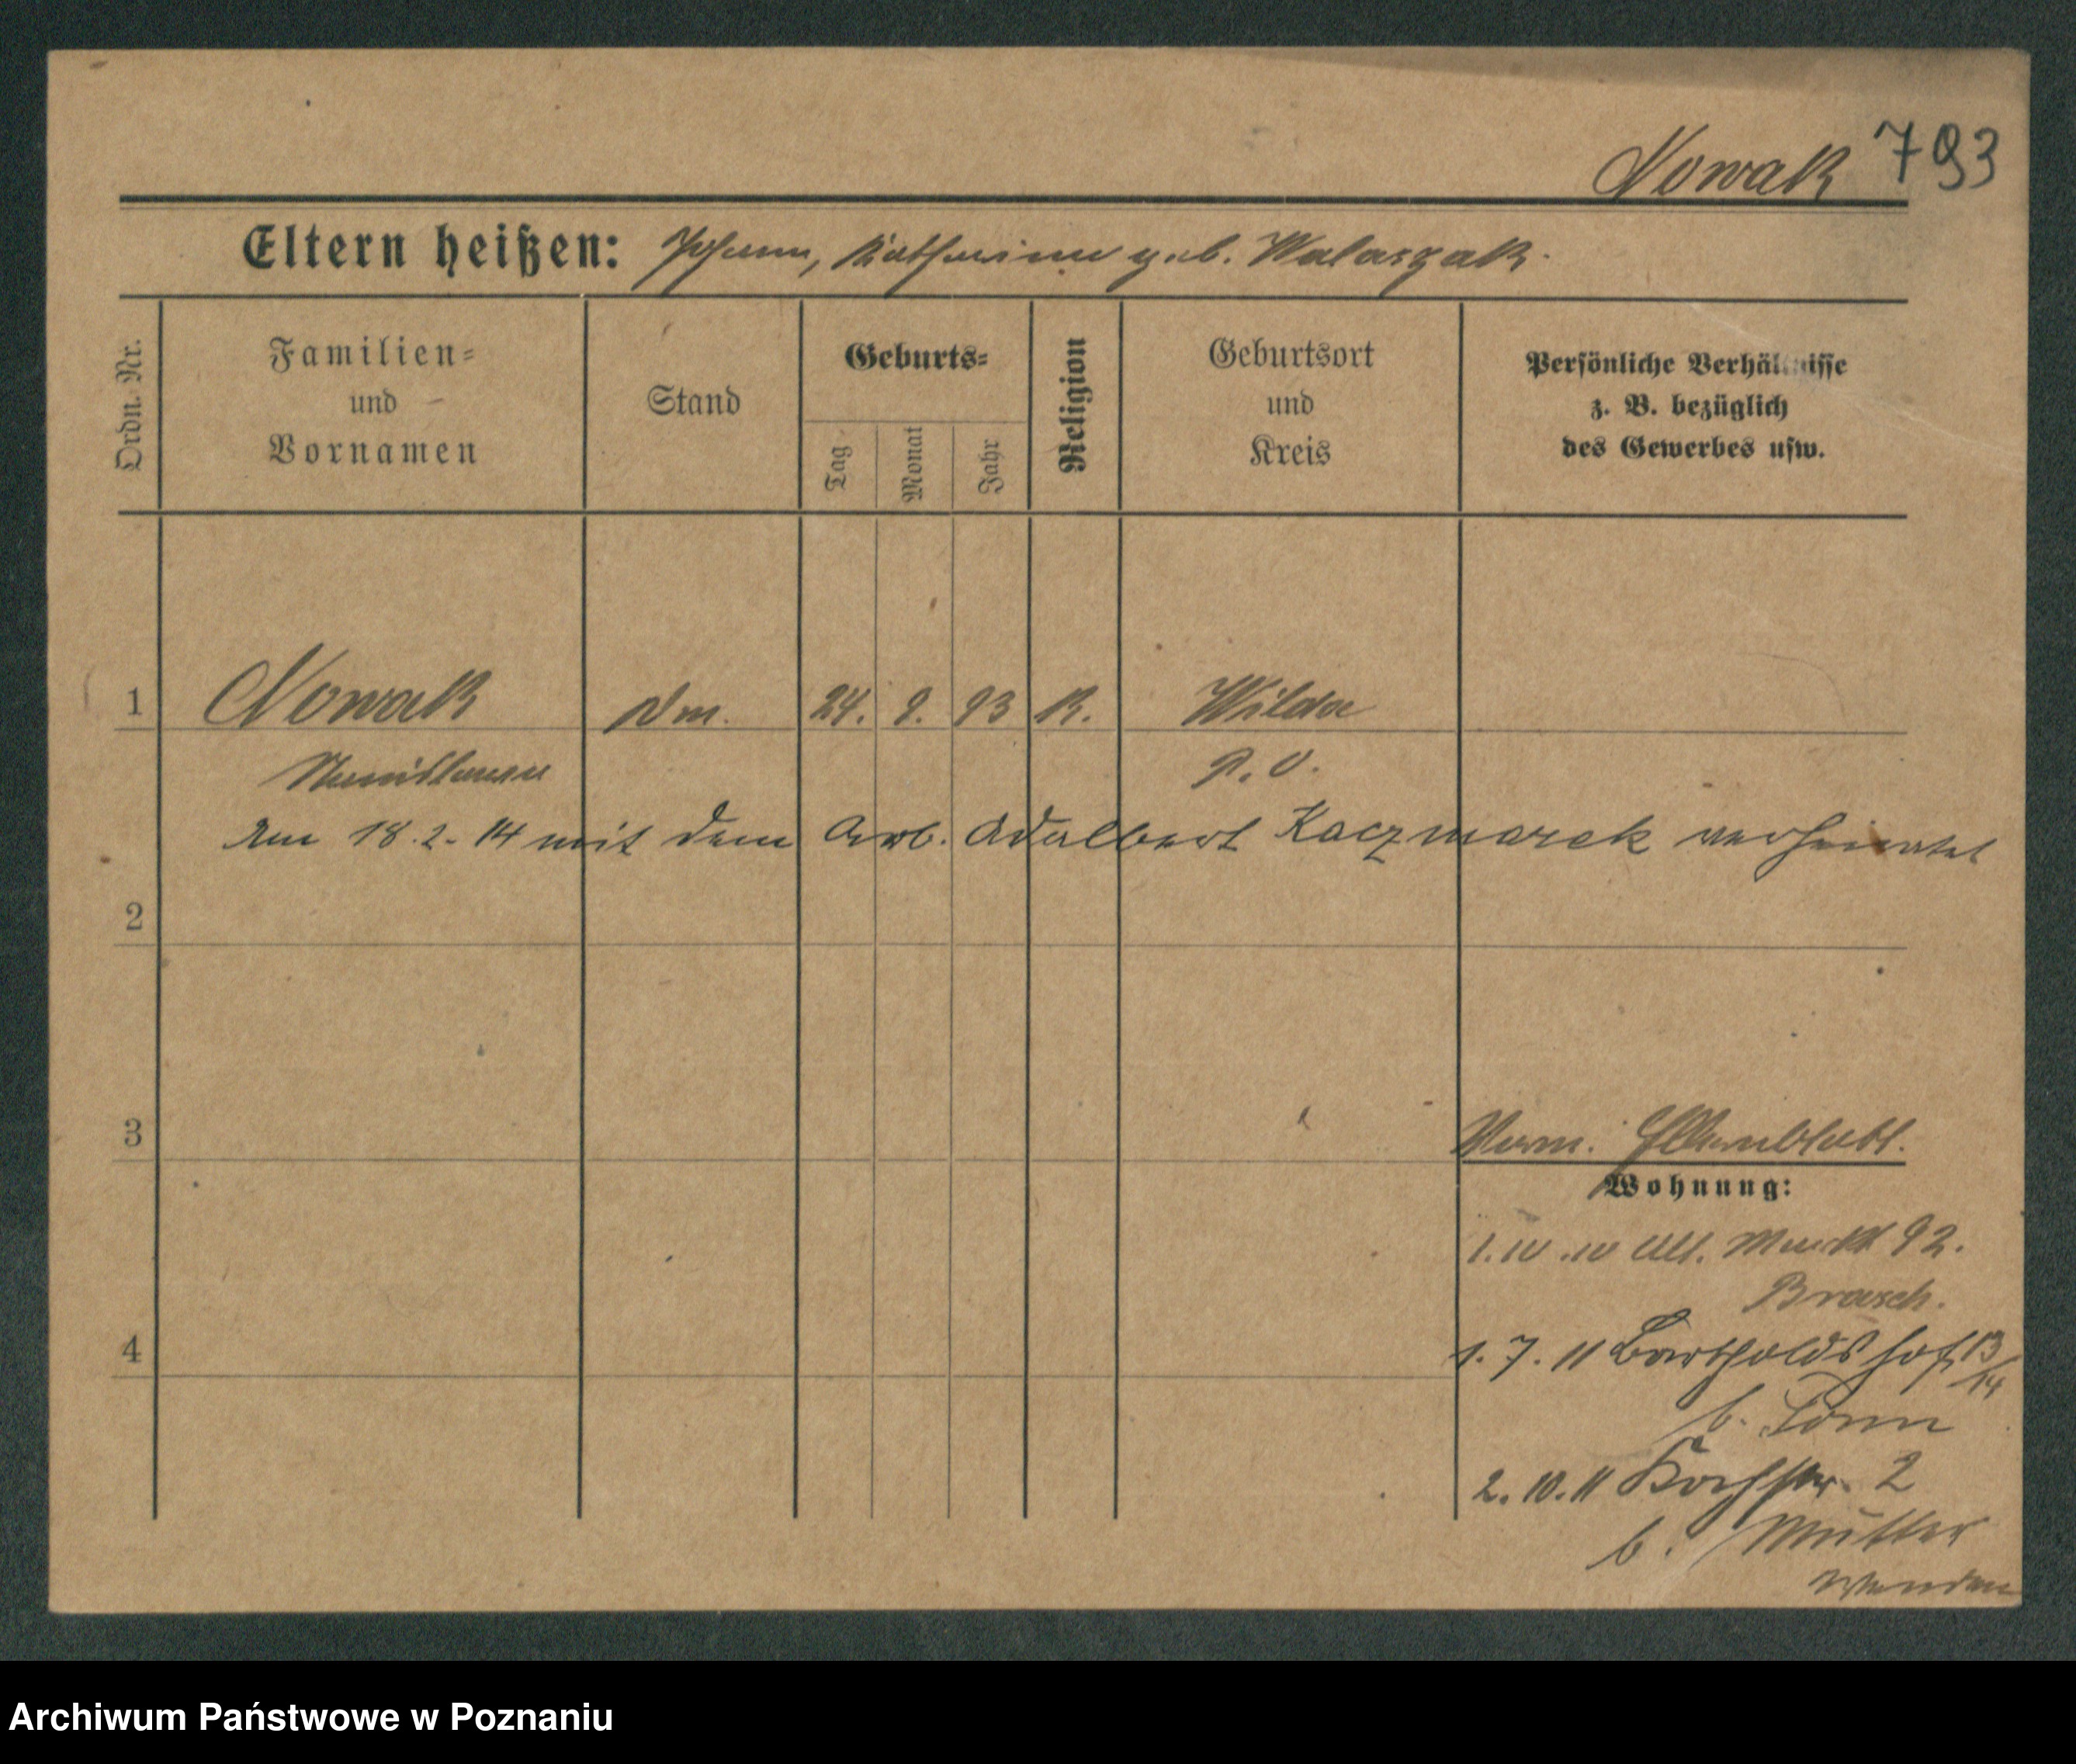 Nowak 793
Eltern heißen: Johann, Katharina geb. Walaszak.
Ordn. Nr.
Familien-
und
Vornamen
Stand
Geburts-
Tag
Monat
Jahr
Religion
Geburtsort
und
Kreis
Persönliche Verhältnisse
z. B. bezüglich
des Gewerbes usw.
1 Nowak Dm. 24. 9. 93 K. Wilda
Stanislawa P. O.
Am 18.2.14 mit dem Arb. Adalbert Kaczmarek verheiratet
2
3
Vorm.
Wohnung:
1. 10. 10 Alt. Markt 92.
Brasch.
4
1. 7. 11 Bartholdshof 13/14
b.
2. 10. 11 2
b. Mutter
Wenden
Archiwum Państwowe w Poznaniu